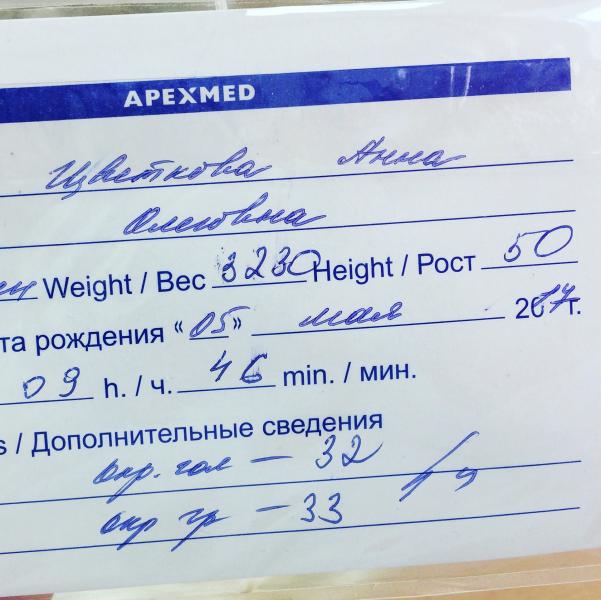 APEXMED
Цветкова Анна
Олеговна
Weight / Вес 3230 Height / Рост 50
та рождения “05” мая 2017г.
09 h. / ч. 46 min. / мин.
s / Дополнительные сведения
окр. гол – 32
окр гр – 33